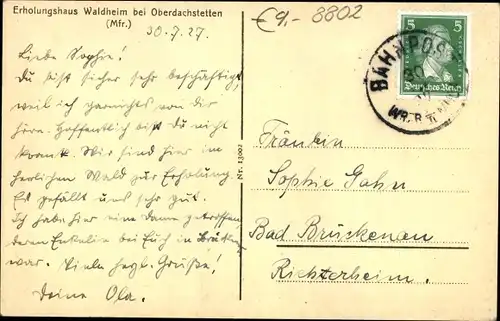 Erholungshaus Waldheim bei Oberdachstetten
(Mfr.)
30.7.27.
€9,- 8802
Liebe Sophie!
Du bist sicher sehr beschäftigt,
weil ich garnichts von dir
höre. Hoffentlich bist du nicht
krank. Wir sind hier im
herrlichen Wald zur Erholung.
Es gefällt uns sehr gut.
Ich habe hier eine Dame getroffen
deren Enkelin bei Euch in
war. Viele herzl. Grüße!
Deine Ola.
Nr. 13002
5 5
Deutsches Reich
BAHNPOST
Fräulein
Sophie Gahn
Bad Brückenau
Richterheim.